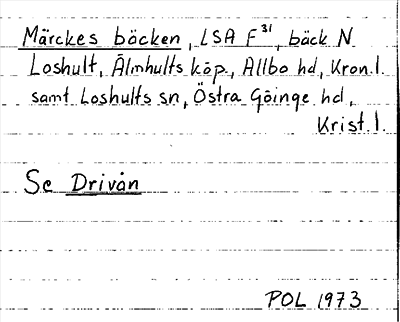 Märckes bäcken, LSA F³¹, bäck N
Loshult, Älmhults köp., Allbo hd, Kron. l.
samt Loshults sn, Östra Göinge hd,
Krist. l.
Se Drivån
POL 1973